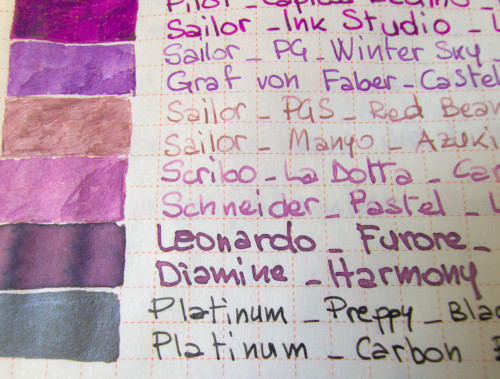 Sailor - Ink Studio -
Sailor - PG - Winter Sky
Graf von Faber-Castel
Sailor - PGS - Red Bea
Sailor - Manyo - Azuki
Scribo - La Dotta - Car
Schneider - Pastel -
Leonardo - Furore -
Diamine - Harmony
Platinum - Preppy - Blac
Platinum - Carbon